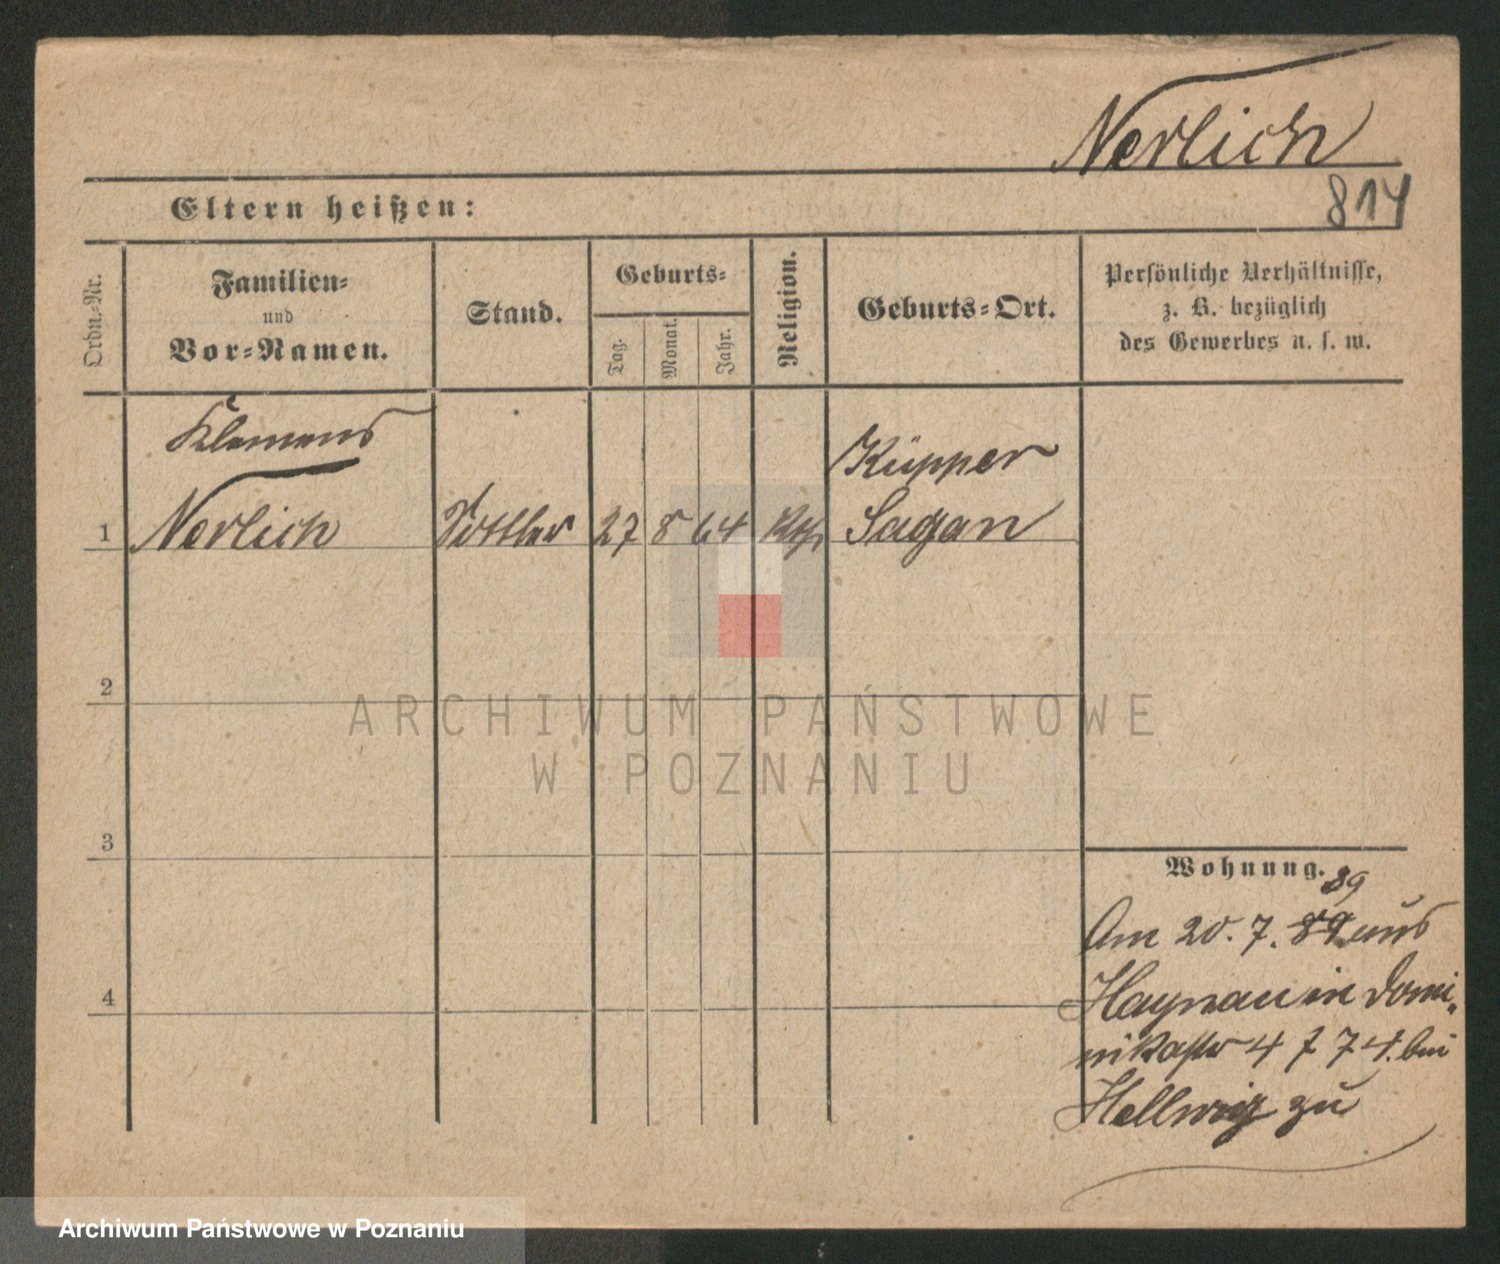 Nerlich
814
Eltern heißen:
Ordn.-Nr.
Familien-
und
Vor-Namen.
Stand.
Geburts-
Tag.
Monat.
Jahr.
Religion.
Geburts-Ort.
Persönliche Verhältnisse,
z. B. bezüglich
des Gewerbes u. s. w.
Klemens
1 Nerlich
27 8 64 Kth
Küpper
Sagan
2
3
4
Wohnung.
89
Am 20. 7. aus
Haynau in Domi-
nikastr 4 74. bei
Hellwig zu
ARCHIWUM PAŃSTWOWE
W POZNANIU
Archiwum Państwowe w Poznaniu